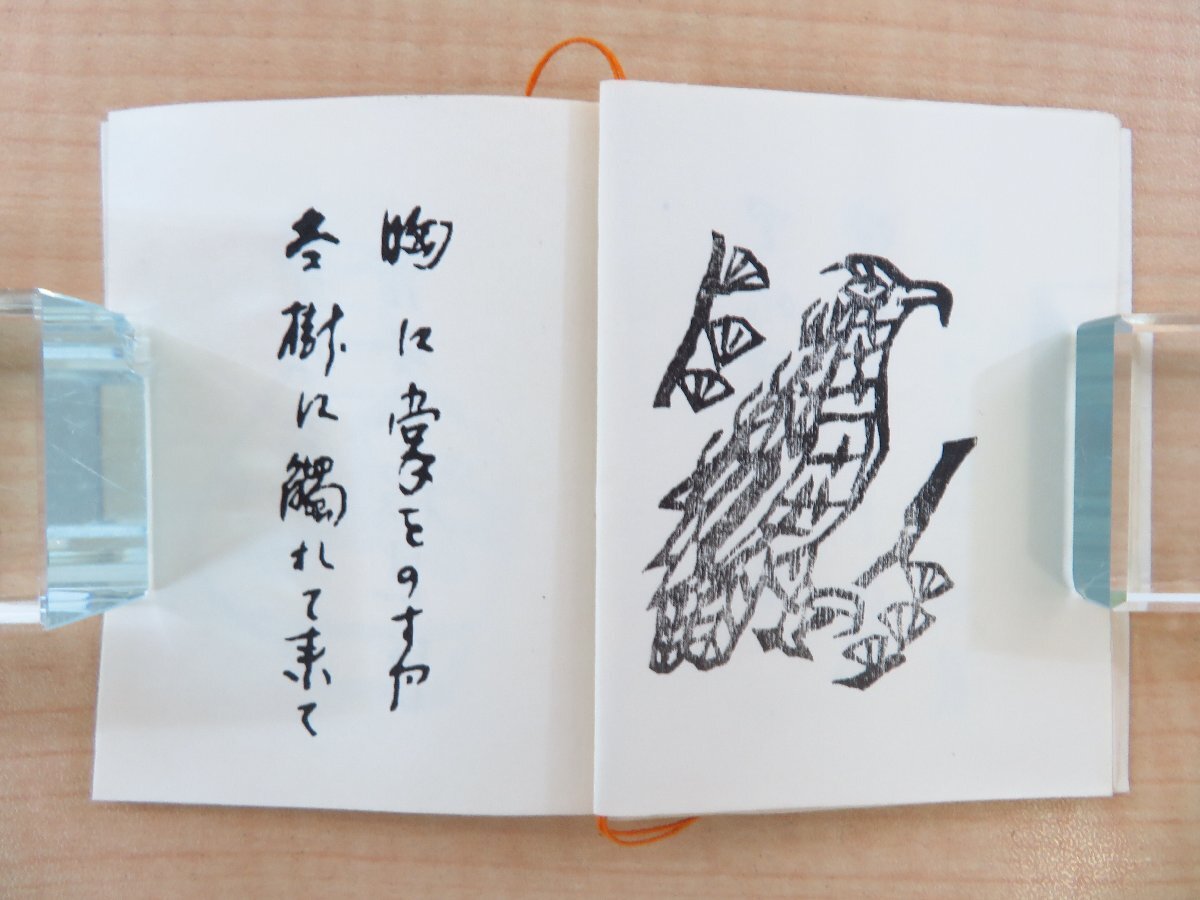 胸に掌をのす門
冬樹に觸れて来て